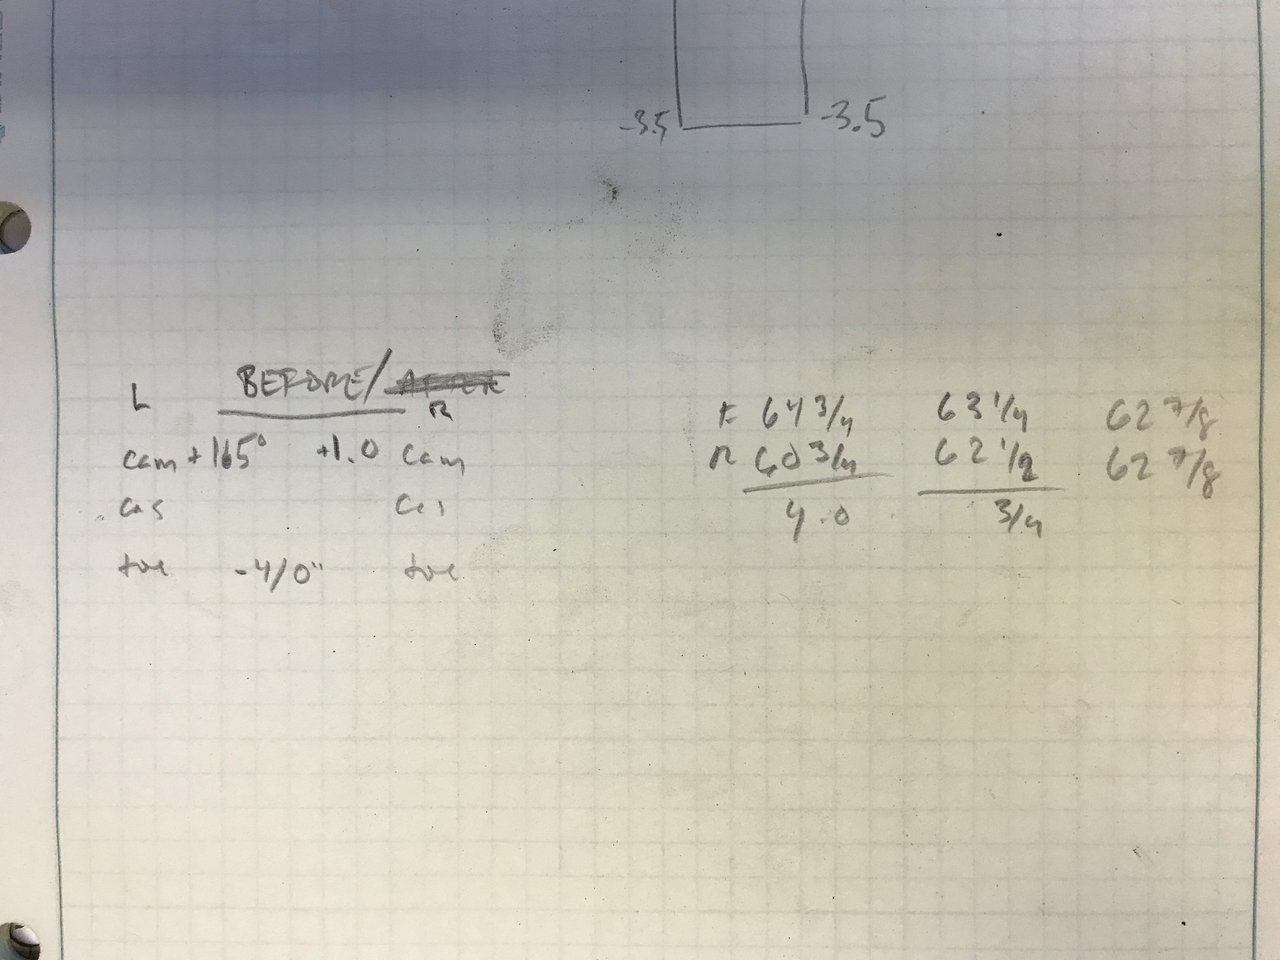 -3.5 -3.5
BEFORE/
L R
cam +165° +1.0 cam
cas cas
toe -4/0" toe
F 64 3/4 63 1/4 62 7/8
R 60 3/4 62 1/2 62 7/8
4.0 3/4